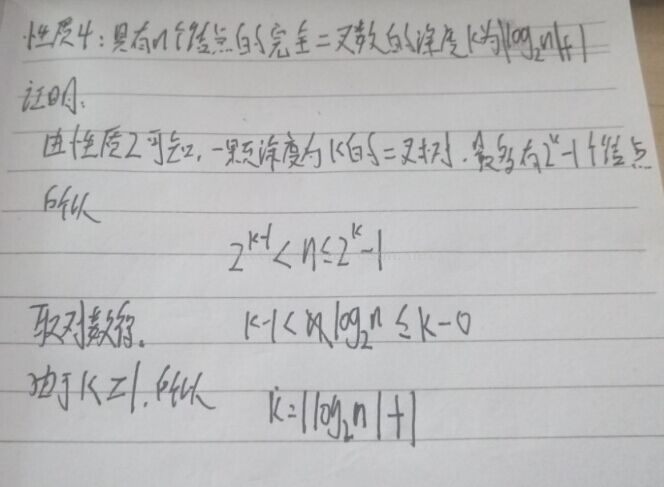 性质4:具有n个结点的完全二叉数的深度K为|log₂n|+1
证明:
由性质2可知,一颗深度为K的二叉树,最多有2^k-1个结点
所以
2^{k-1} < n ≤ 2^k-1
取对数得. k-1 < log₂n ≤ k-0
由于K≥1,所以 k=|log₂n|+1